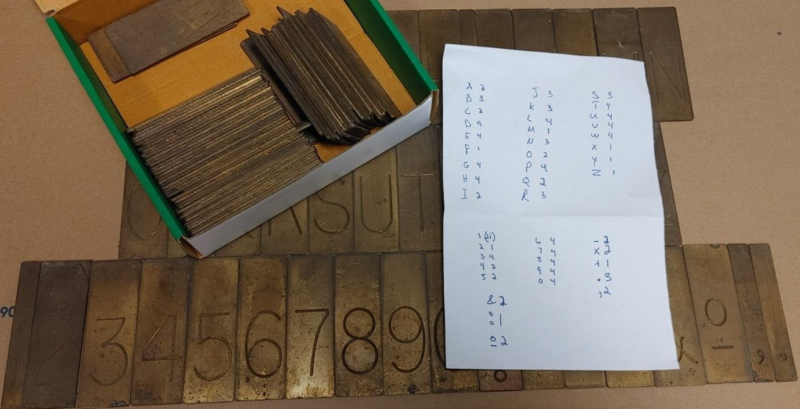 90
N
O
K S U T
3 4 5 6 7 8 9 0
x o , .
A 2
B 3
C 2
E 4
F 1
G 4
H 4
I 2
J 3
K 3
L 4
M 1
N 3
O 2
P 4
Q 2
R 3
S 5
T 4
U 4
V 4
W 4
X 1
Y 1
Z 1
2 1
3 4
4 2
5 2
6 4
7 4
8 4
9 4
0 4
- 2
x 2
+ 1
. 5
& 2